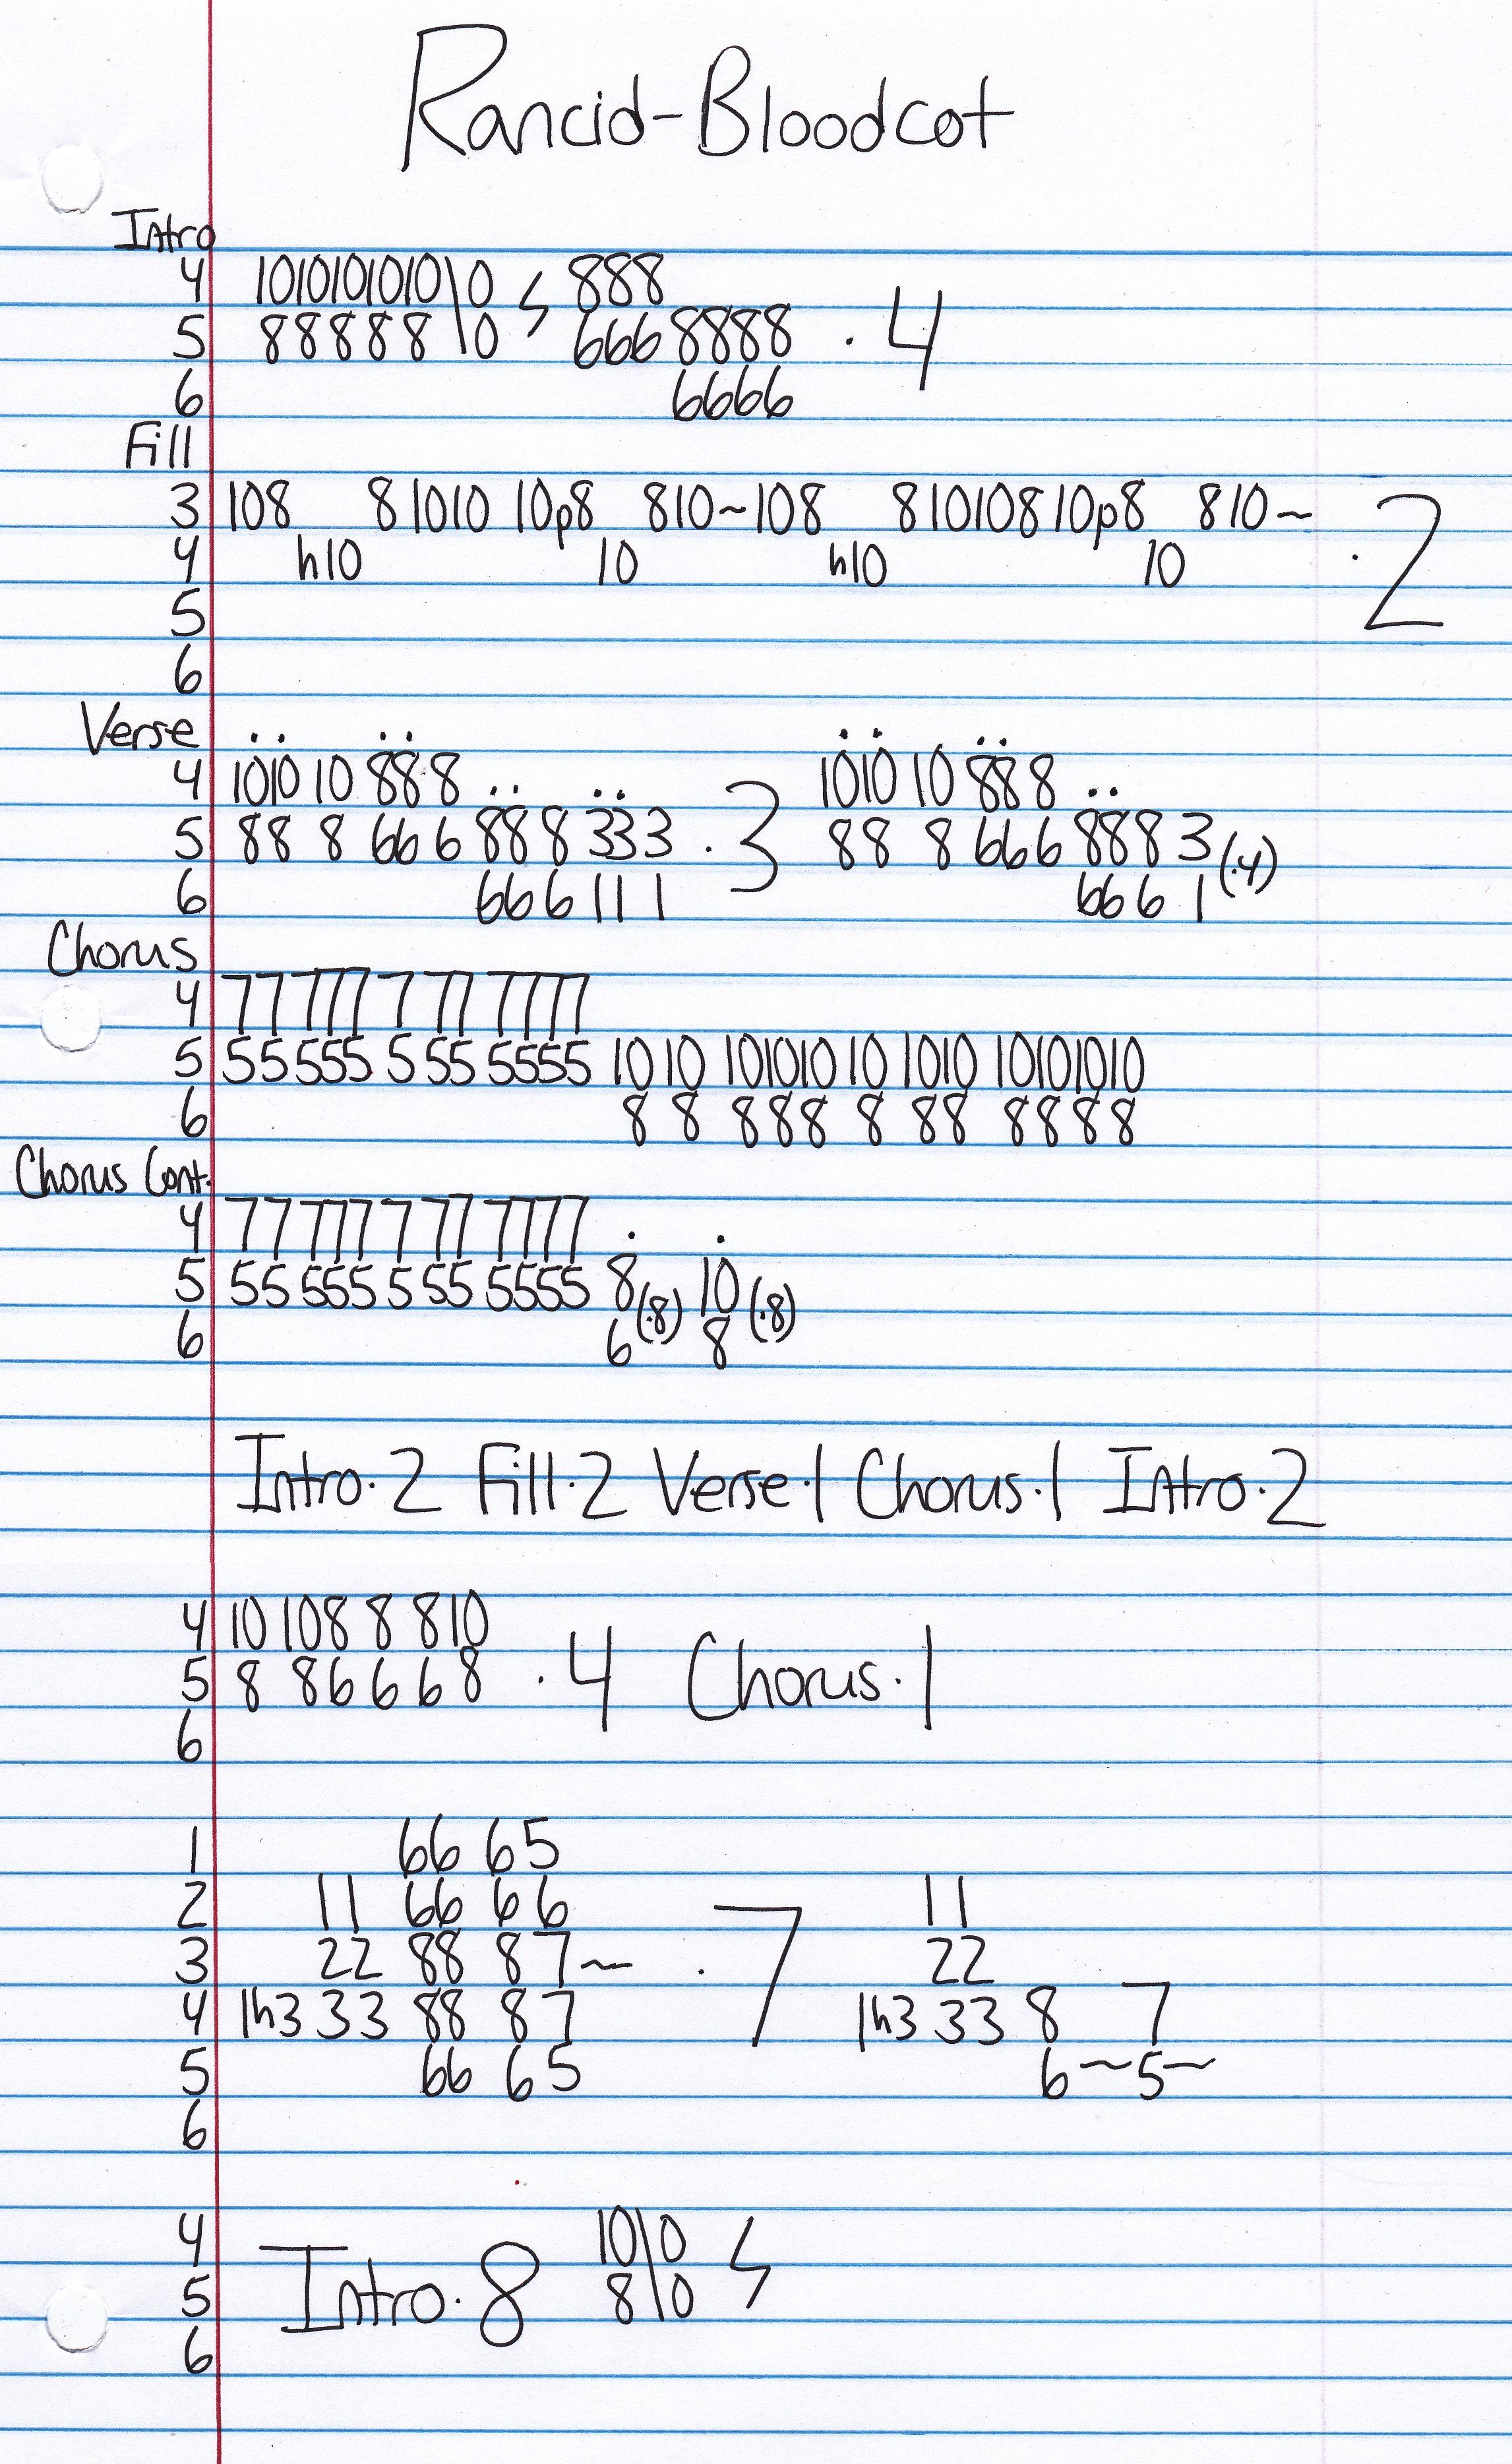 Rancid-Bloodcot
Intro
4 10 10 10 10 10 \ 0 888
5 8 8 8 8 8 \ 0 666 8888 · 4
6 6666
Fill
3 108 8 10 10 10p8 8 10~108 8 10 10 8 10p8 8 10~ · 2
4 h10 10 h10 10
5
6
Verse
4 10 10 10 88 8 10 10 10 88 8
5 88 8 66 6 88 8 33 3 · 3 88 8 666 888 3 (·4)
6 66 6 11 1 66 6 1
Chorus
4 77 777 7 77 7777
5 55 555 5 55 5555 10 10 10 10 10 10 10 10 10 10 10 10
6 8 8 8 8 8 8 8 8 8 8 8 8
Chorus Cont.
4 77 777 7 77 7777
5 55 555 5 55 5555 8 (·8) 10 (·8)
6 6 8
Intro·2 Fill·2 Verse·1 Chorus·1 Intro·2
4 10 10 8 8 8 10
5 8 8 6 6 6 8 · 4 Chorus·1
6
1 66 65
2 11 66 66 11
3 22 88 87~ · 7 22
4 1h3 33 88 87 1h3 33 8 7
5 66 65 6~5~
6
4 10 \ 0
5 Intro·8 8 \ 0
6